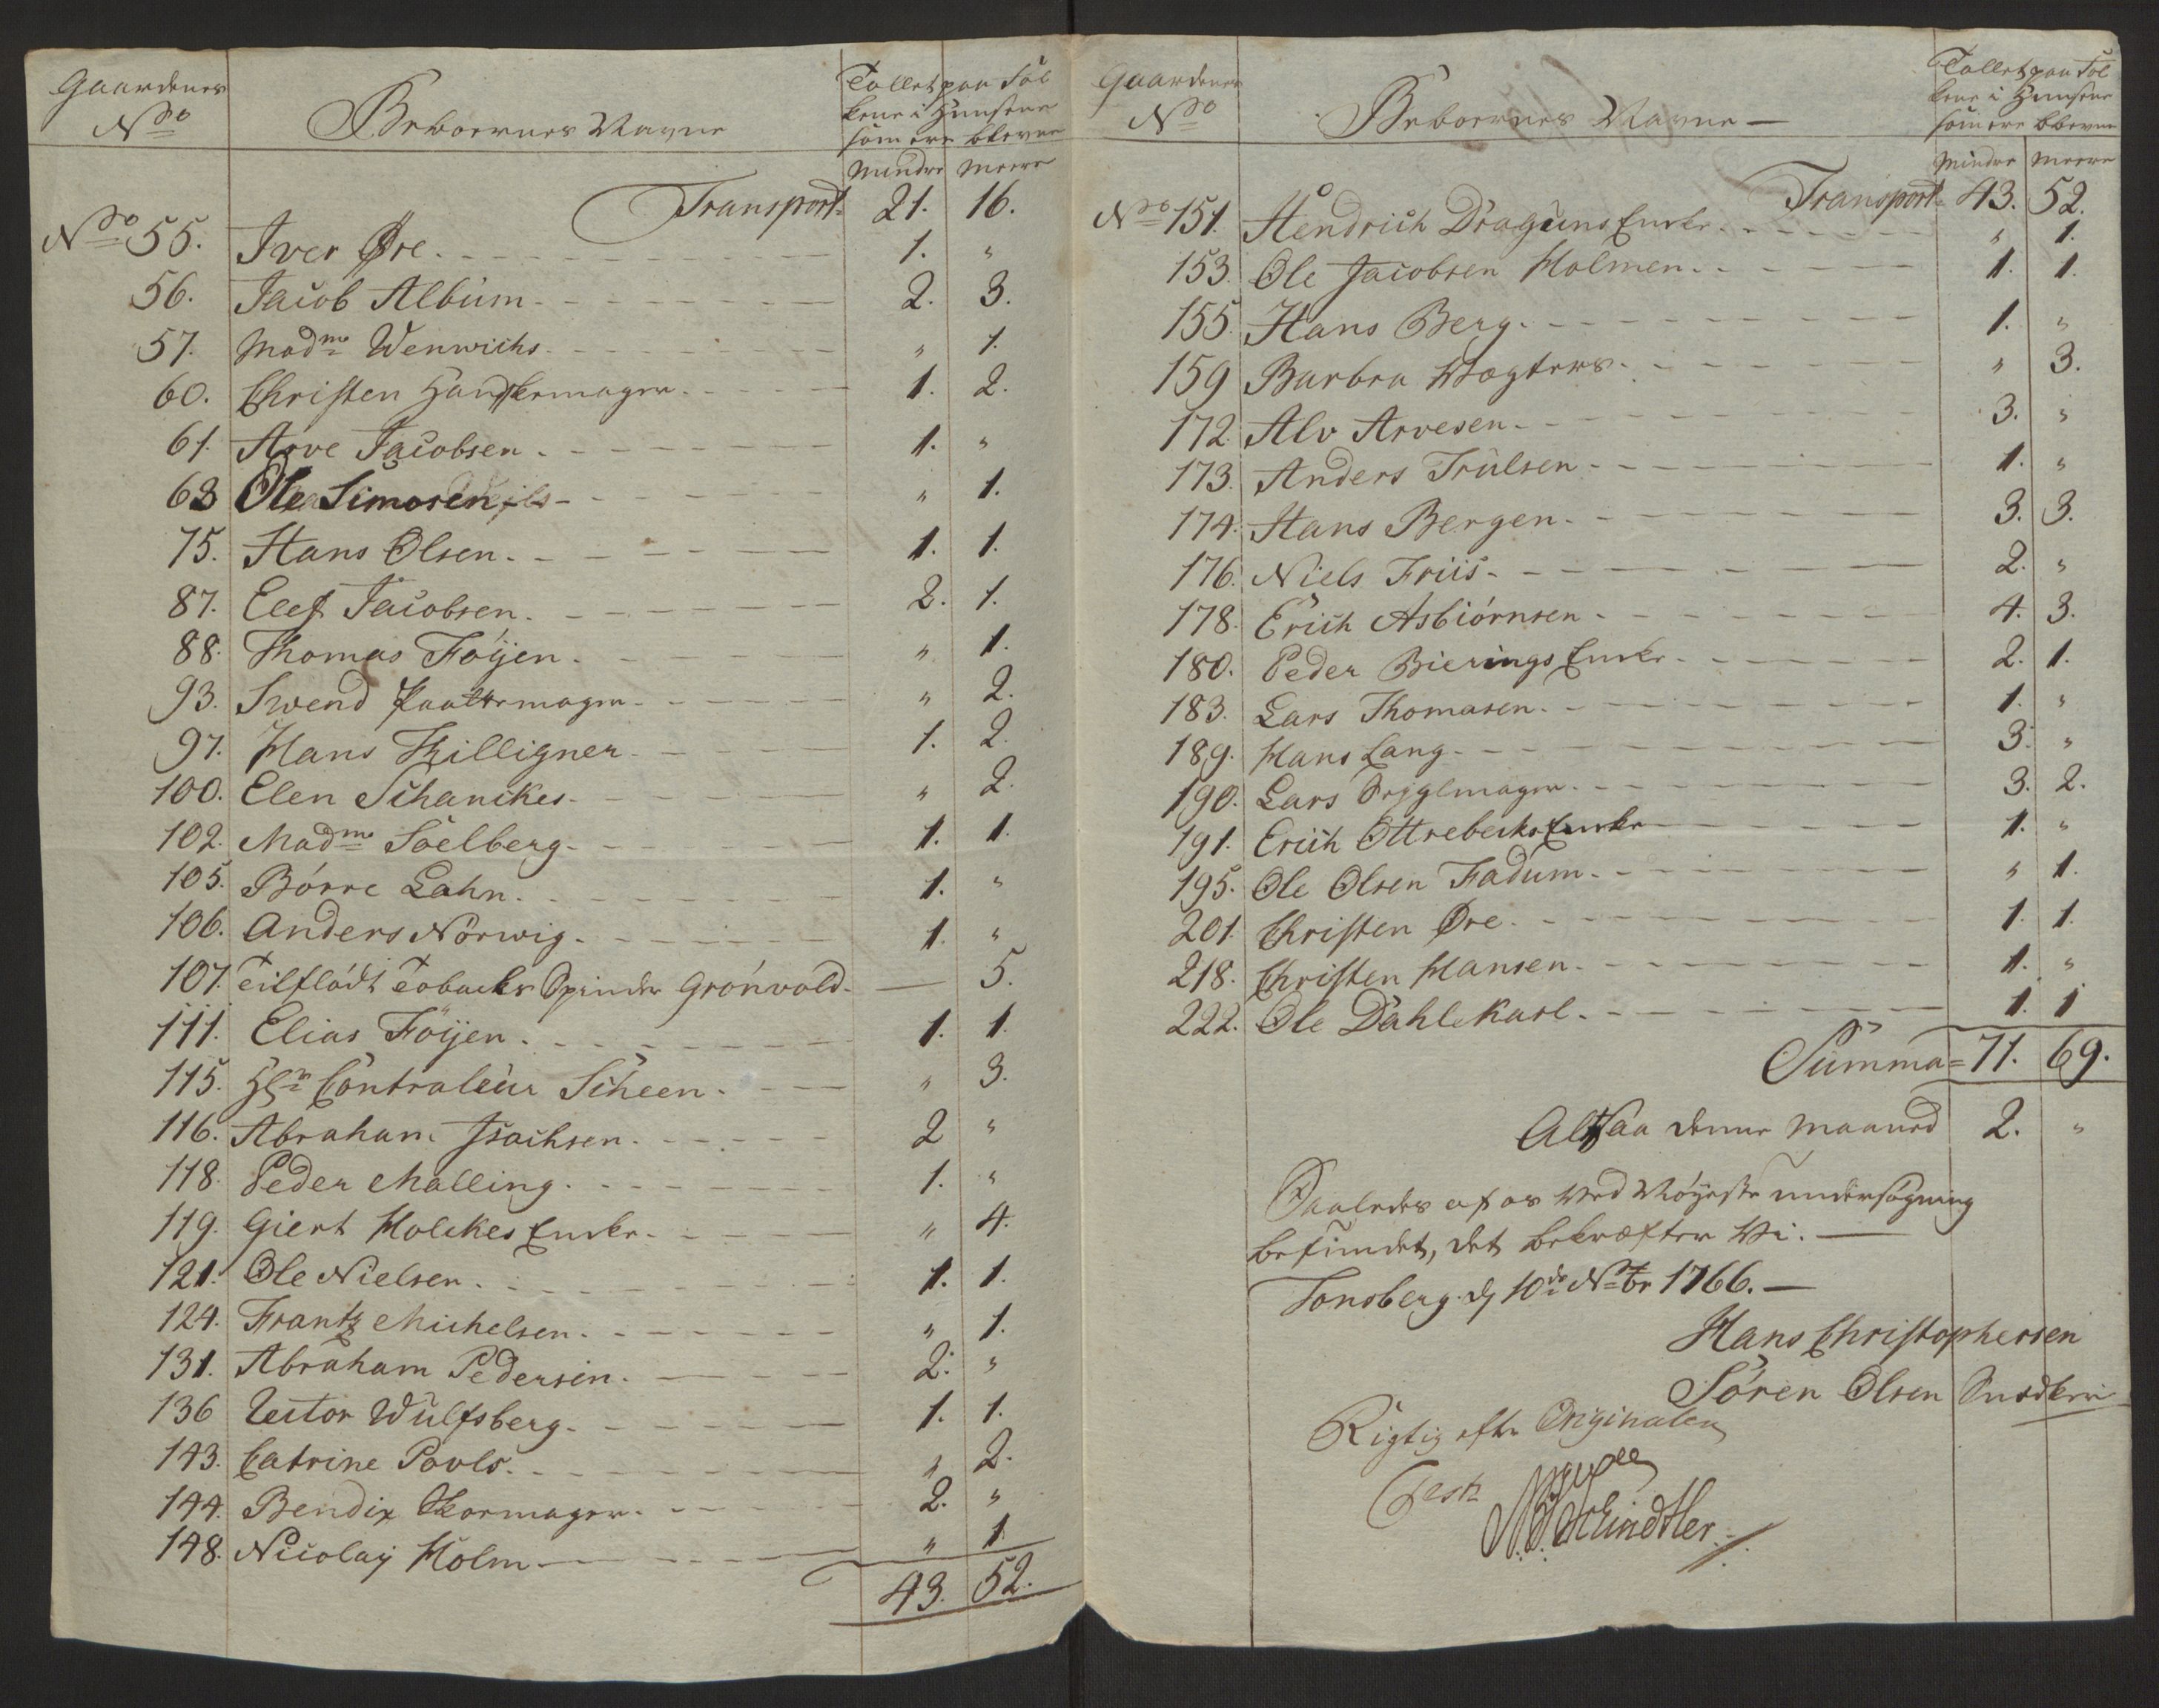 Gaardenes
No
Beboernes Navne
Tallet paa Fol
kene i Huusene
som ere blevne
mindre meere
Transport 21. 16.
No 55. Iver Øre. 1. "
56. Jacob Album 2. 3.
57. Madme Wenwichs " 1.
60. Christen Handskemager. 1. 2.
61. Arve Jacobsen. 1. "
63 Ole Simosen " 1.
75. Hans Olsen. 1. 1.
87. Elef Jacobsen. 2. 1.
88. Thomas Föijen. " 1.
93. Swend Paattemager " 2.
97. Hans Killigner 1. 2.
100. Elen Schanckes. " 2.
102. Madme Soelberg. 1. 1.
105. Börre Lahn. 1. "
106. Anders Norwig. 1. "
107. Tilflödt Tobacks Spinder Grönvold. — 5.
111. Elias Föijen. 1. 1.
115. Hr Contraleur Scheen. " 3.
116. Abraham Isachsen. 2 "
118. Peder Malling. 1. "
119. Giert Holckes Encke. " 4.
121. Ole Nielsen. 1. 1.
124. Frantz Michelsen. " 1.
131. Abraham Pedersen. 2. "
136 Uctor Wulfsberg. 1. 1.
143. Catrine Povls. " 2.
144. Bendix Skoemager. 2. "
148. Nicolaij Holm " 1.
43. 52.
Gaardenes
No
Beboernes Navne
Tallet paa Fol
kene i Huusene
som ere blevne
mindre meere
Transport 43. 52.
No 151. Hendrich Draguns Encke. " 1.
153. Ole Jacobsen Holmen. 1. 1.
155. Hans Berg. 1. "
159 Barbra Wogters. " 3.
172. Alv Arvesen. 3. "
173. Anders Trulsen 1. "
174. Hans Bergen. 3. 3.
176. Niels Friis. 2. "
178. Erich Asbiörnsen 4. 3.
180. Peder Bierings Encke. 2. 1.
183. Lars Thomasen. 1. "
189. Hans Lang. 3. "
190. Lars Sejglmager. 3. 2.
191. Erich Ottrebecks Encke 1. "
195. Ole Olsen Fadum. " 1.
201. Christen Øre. 1. 1.
218. Christen Hansen. 1. "
222. Ole Dahlekarl. 1. 1
Summa 71. 69.
Altsaa denne Maaned 2. "
Saaledes af os ved Nöyeste undersögning
befundet, det bekræfter Vi.
Tonsberg d 10de Nobr 1766.
Hans Christophersen
Sören Olsen Snedker
Rigtig efter Originalen
Test
Schindtler